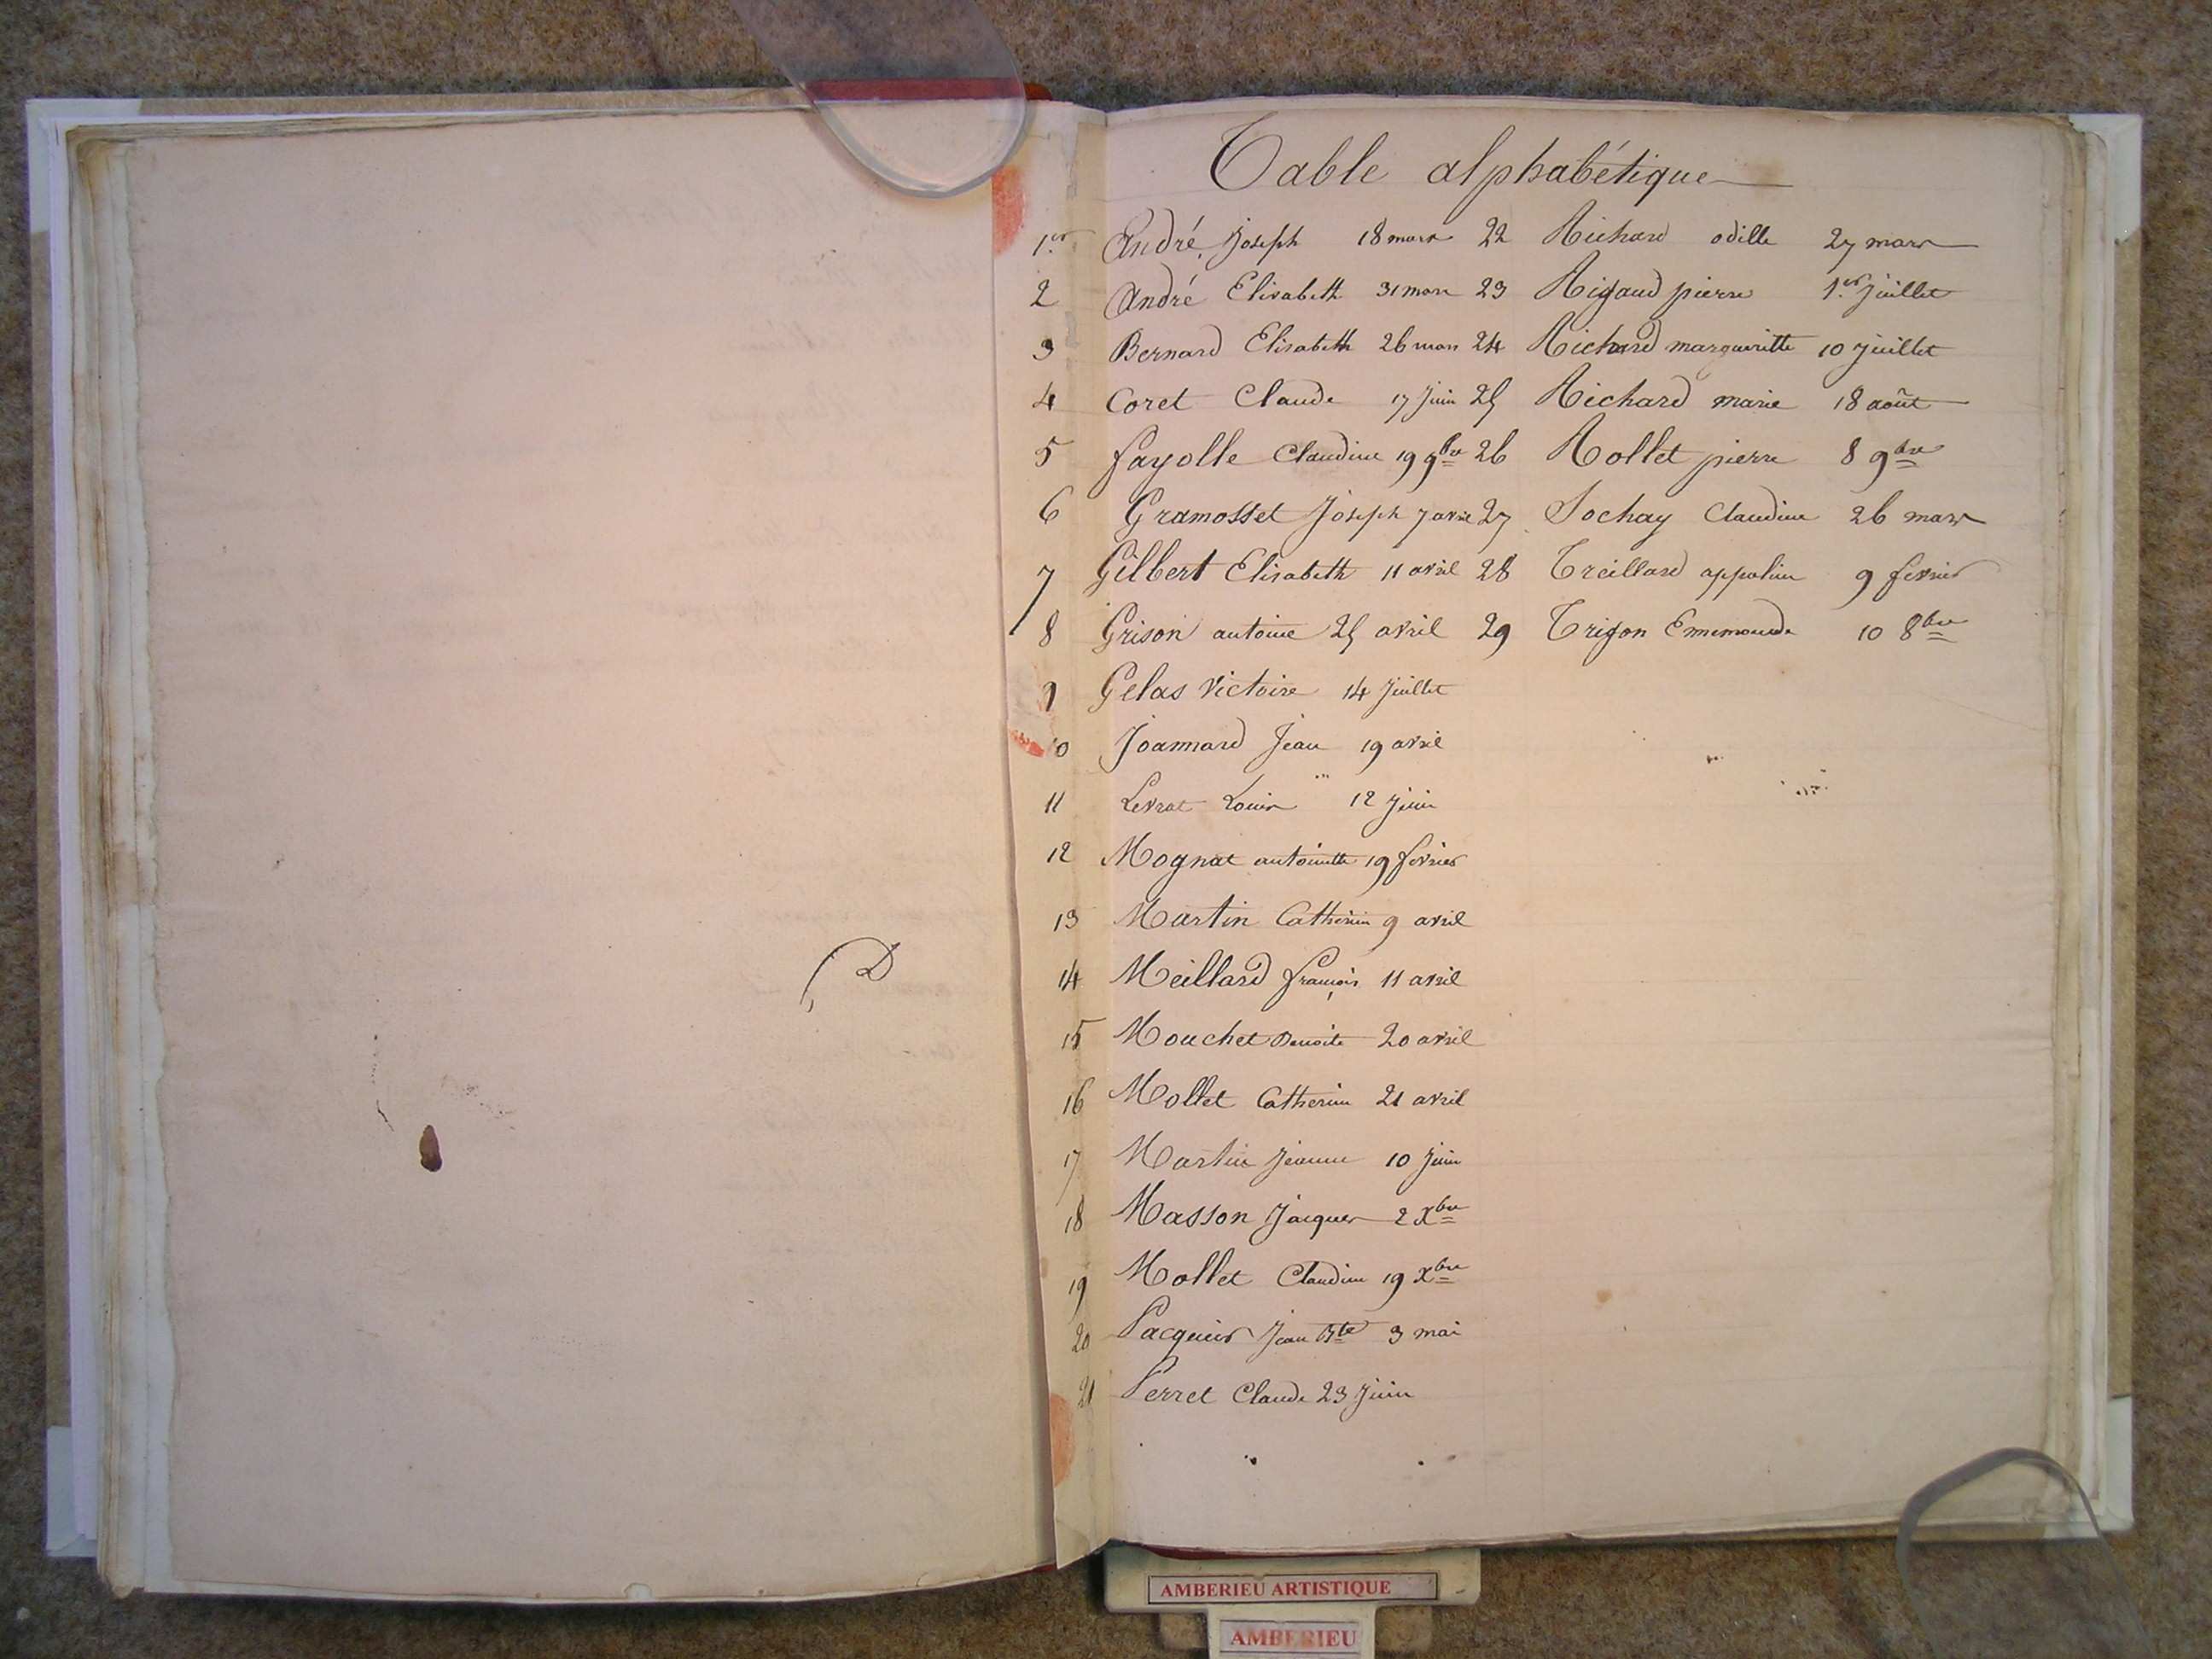 Table alphabétique
1er André Joseph 18 mars 22 Richard odille 27 mars
2 André Elisabeth 31 mars 23 Rigaud pierre 1er juillet
3 Bernard Elisabeth 26 mars 24 Richard margueritte 10 juillet
4 Coret Claude 17 juin 25 Richard marie 18 août
5 fayolle Claudine 19 9bre 26 Rollet pierre 8 9bre
6 Gramosset Joseph 7 avril 27 Sochay Claudine 26 mars
7 Gilbert Elisabeth 11 avril 28 Treillard appoline 9 fevrier
8 Grison antoine 25 avril 29 Trigon Ememonde 10 8bre
9 Gelas Victoire 14 Juillet
10 Joannard Jean 19 avril
11 Levrat Louis 12 juin
12 Mognat antoinette 19 fevrier
13 Martin Catherine 9 avril
14 Meillard françois 11 avril
15 Mouchet Benoite 20 avril
16 Mollet Catherine 21 avril
17 Martin Jeanne 10 juin
18 Masson Jacques 2 Xbre
19 Mollet Claudine 19 Xbre
20 Pacquier Jean Bte 3 mai
21 Perret Claude 23 Juin
D
AMBERIEU ARTISTIQUE
AMBERIEU